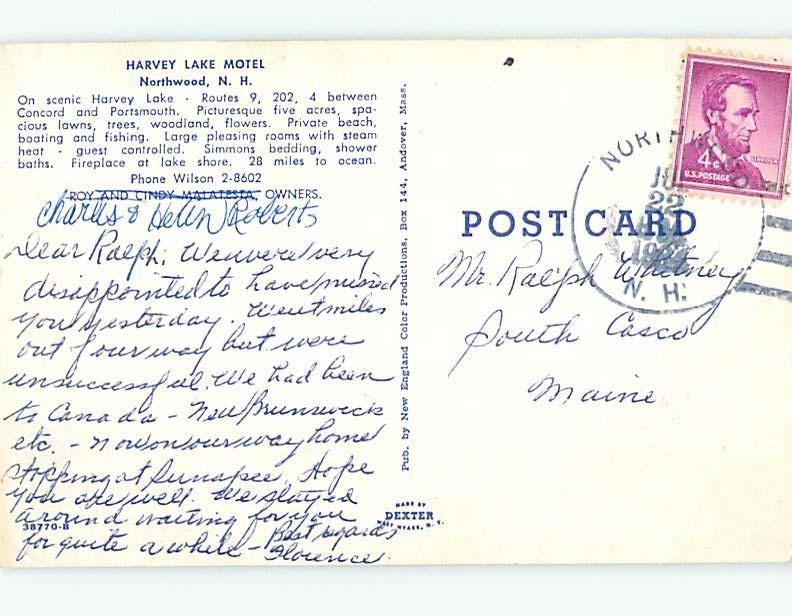 HARVEY LAKE MOTEL
Northwood, N. H.
On scenic Harvey Lake - Routes 9, 202, 4 between
Concord and Portsmouth. Picturesque five acres, spa-
cious lawns, trees, woodland, flowers. Private beach,
boating and fishing. Large pleasing rooms with steam
heat - guest controlled. Simmons bedding, shower
baths. Fireplace at lake shore. 28 miles to ocean.
Phone Wilson 2-8602
ROY AND CINDY MALATESTA, OWNERS.
Charles & Helen Roberts
Dear Ralph: We were very
disappointed to have missed
you yesterday. Went miles
out of our way but were
unsuccessful. We had been
to Canada - New Brunswick
etc. - now on our way home
stopping at Sunapee. Hope
you are well. We stayed
around waiting for you
for quite a while - Best regards
Florence.
38770-B
Pub. by New England Color Productions, Box 144, Andover, Mass.
MADE BY
DEXTER
WEST NYACK, N. Y.
POST CARD
Mr. Ralph Whitney
South Casco
Maine
4¢
LINCOLN
U.S. POSTAGE
NORTHWOOD
22
N. H.